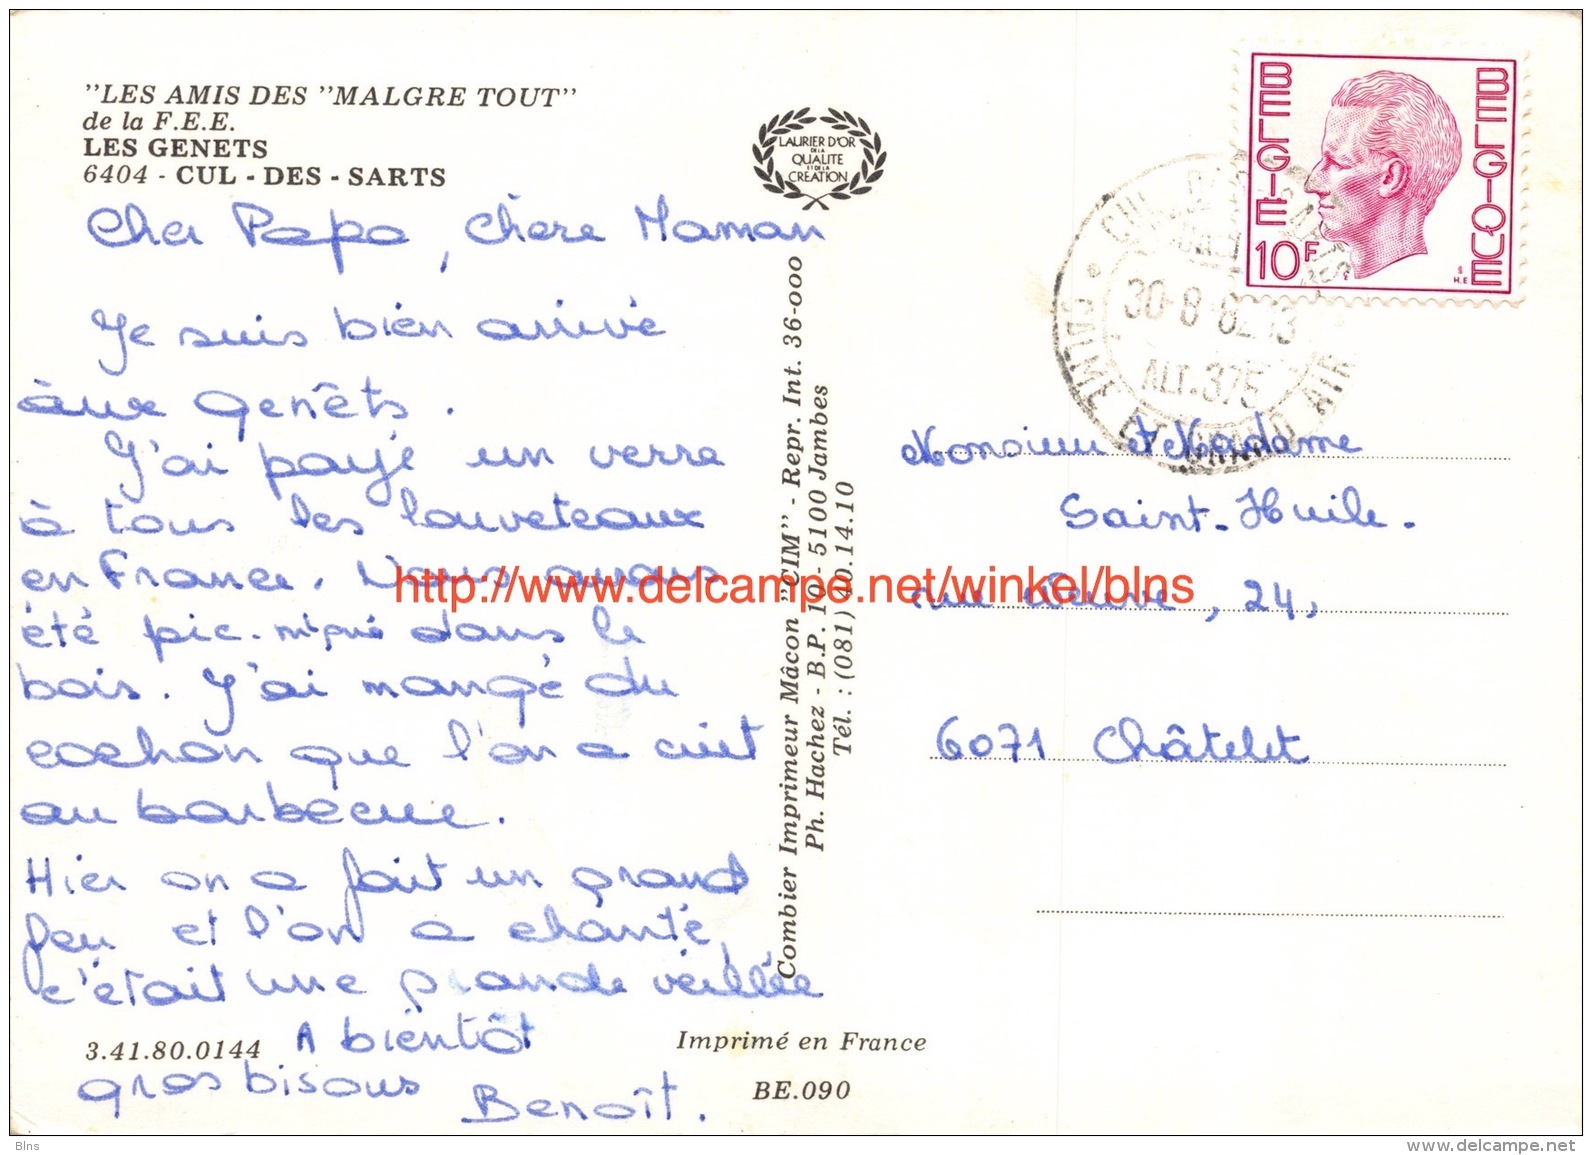 "LES AMIS DES "MALGRE TOUT"
de la F.E.E.
LES GENETS
6404 - CUL - DES - SARTS
Cher Papa, chère Maman
Je suis bien arrivé
àux genêts.
J'ai payé un verre
à tous les louveteaux
en France. Nous avons
été pic-niqué dans le
bois. J'ai mangé du
cochon que l'on a cuit
au barbecue.
Hier on a fait un grand
feu et l'on a chanté,
c'était une grande veillée
A bientôt
gros bisous
Benoît.
3.41.80.0144
Imprimé en France
BE.090
LAURIER D'OR
DE LA
QUALITE
ET DE LA
CREATION
Combier Imprimeur Mâcon "CIM" - Repr. Int. 36-000
Ph. Hachez - B.P. 10 - 5100 Jambes
Tél. : (081) 40.14.10
BELGIE
BELGIQUE
10F
H.E
30-8-82-13
ALT. 375
CALME ET GRAND AIR
Monsieur et Madame
Saint-Huile.
24,
6071 Châtelet
http://www.delcampe.net/winkel/blns
Blns
www.delcampe.net